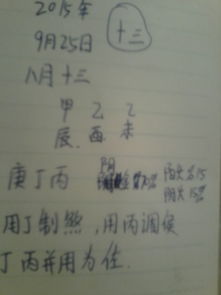 2015年
十三
9月25日
八月十三
甲乙乙
辰.酉未
庚丁丙
阴
用丁制煞,用丙调候
丁丙并用为佳.